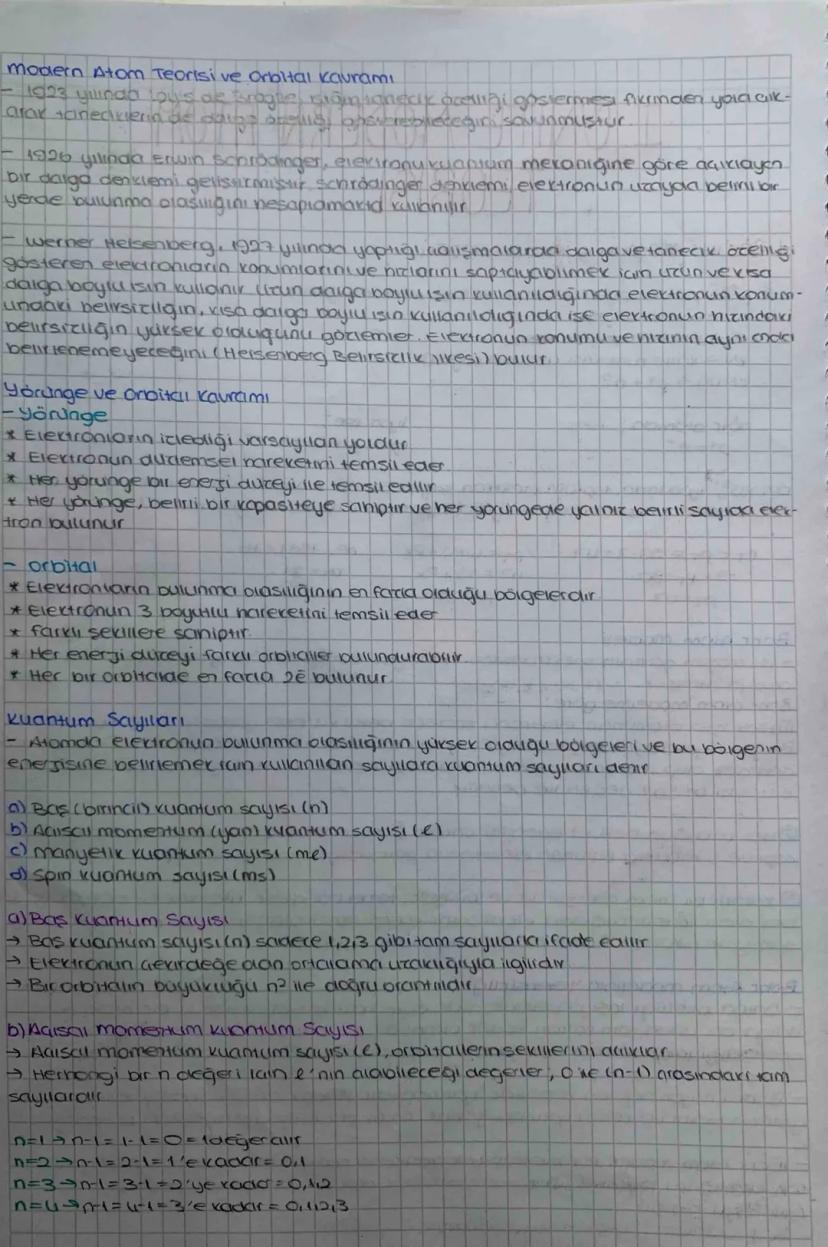 Modern Atom Teorisi ve Orbital Kavramı
- 1923 yılında Loyis de Brogne, ışığın tanecik özelliği göstermesi fikrinden yola çık-
arak taneciklerin de dalga özelliği gösterebileceğini savunmuştur.
- 1926 yılında Erwin Schrödinger, elektronu kuantum mekaniğine göre açıklayan
bir dalga denklemi geliştirmiştir. Schrödinger denklemi, elektronun uzayda belirli bir
yerde bulunma olasılığını hesaplamakta kullanılır.
- Werner Heisenberg, 1927 yılında yaptığı çalışmalarda dalga ve tanecik özelliği
gösteren elektronların konumlarını ve hızlarını saptayabilmek için uzun ve kısa
dalga boylu ışın kullanır. Uzun dalga boylu ışın kullanıldığında elektronun konum-
undaki belirsizliğin, kısa dalga boylu ışın kullanıldığında ise elektronun hızındaki
belirsizliğin yüksek olduğunu gözlemler. Elektronun konumu ve hızının aynı anda
belirlenemeyeceğini (Heisenberg Belirsizlik ilkesi) bulur.
Yörünge ve Orbital Kavramı
- Yörünge
* Elektronların izlediği varsayılan yoldur.
* Elektronun düzlemsel hareketini temsil eder.
* Her yörünge bir enerji düzeyi ile temsil edilir.
* Her yörünge, belirli bir kapasiteye sahiptir ve her yörüngede yalnız belirli sayıda elek-
tron bulunur.
- Orbital
* Elektronların bulunma olasılığının en fazla olduğu bölgelerdir.
* Elektronun 3 boyutlu hareketini temsil eder.
* Farklı şekillere sahiptir.
* Her enerji düzeyi farklı orbitaller bulundurabilir.
* Her bir orbitalde en fazla 2ē bulunur.
Kuantum Sayıları
- Atomda elektronun bulunma olasılığının yüksek olduğu bölgeleri ve bu bölgenin
enerjisine belirlemek için kullanılan sayılara kuantum sayıları denir.
a) Baş (birincil) kuantum sayısı (n)
b) Açısal momentum (yan) kuantum sayısı (ℓ)
c) Manyetik kuantum sayısı (mℓ)
d) Spin kuantum sayısı (ms)
a) Baş Kuantum Sayısı
→ Baş kuantum sayısı (n) sadece 1,2,3 gibi tam sayılarla ifade edilir.
→ Elektronun çekirdeğe olan ortalama uzaklığıyla ilgilidir.
→ Bir orbitalin büyüklüğü n² ile doğru orantılıdır.
b) Açısal momentum kuantum Sayısı
→ Açısal momentum kuantum sayısı (ℓ), orbitallerin şekillerini açıklar.
→ Herhangi bir n değeri için ℓ'nin alabileceği değerler, 0 ile (n-1) arasındaki tam
sayılardır.
n=1 → n-1 = 1-1 = 0 = 1 değer alır
n=2 → n-1 = 2-1 = 1'e kadar = 0,1
n=3 → n-1 = 3-1 = 2'ye kadar = 0,1,2
n=4 → n-1 = 4-1 = 3'e kadar = 0,1,2,3